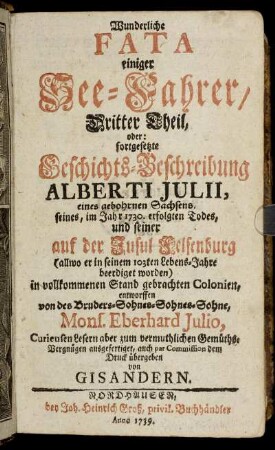 Wunderliche
FATA
einiger
See-Fahrer/
Dritter Theil,
oder:
fortgesetzte
Geschichts-Beschreibung
ALBERTI JULII,
eines gebohrnen Sachsens,
seines, im Jahr 1730. erfolgten Todes,
und seiner
auf der Insul Felsenburg
(allwo er in seinem 103ten Lebens-Jahre
beerdiget worden)
in vollkommenen Stand gebrachten Colonien,
entworffen
von des Bruders-Sohnes-Sohnes-Sohne,
Mons. Eberhard Julio,
Curieusen Lesern aber zum vermuthlichen Gemüths-
Vergnügen ausgefertiget, auch par Commission dem
Druck übergeben
von
GISANDERN.
NORDHAUSEN,
bey Joh. Heinrich Groß, privil. Buchhändler
Anno 1739.